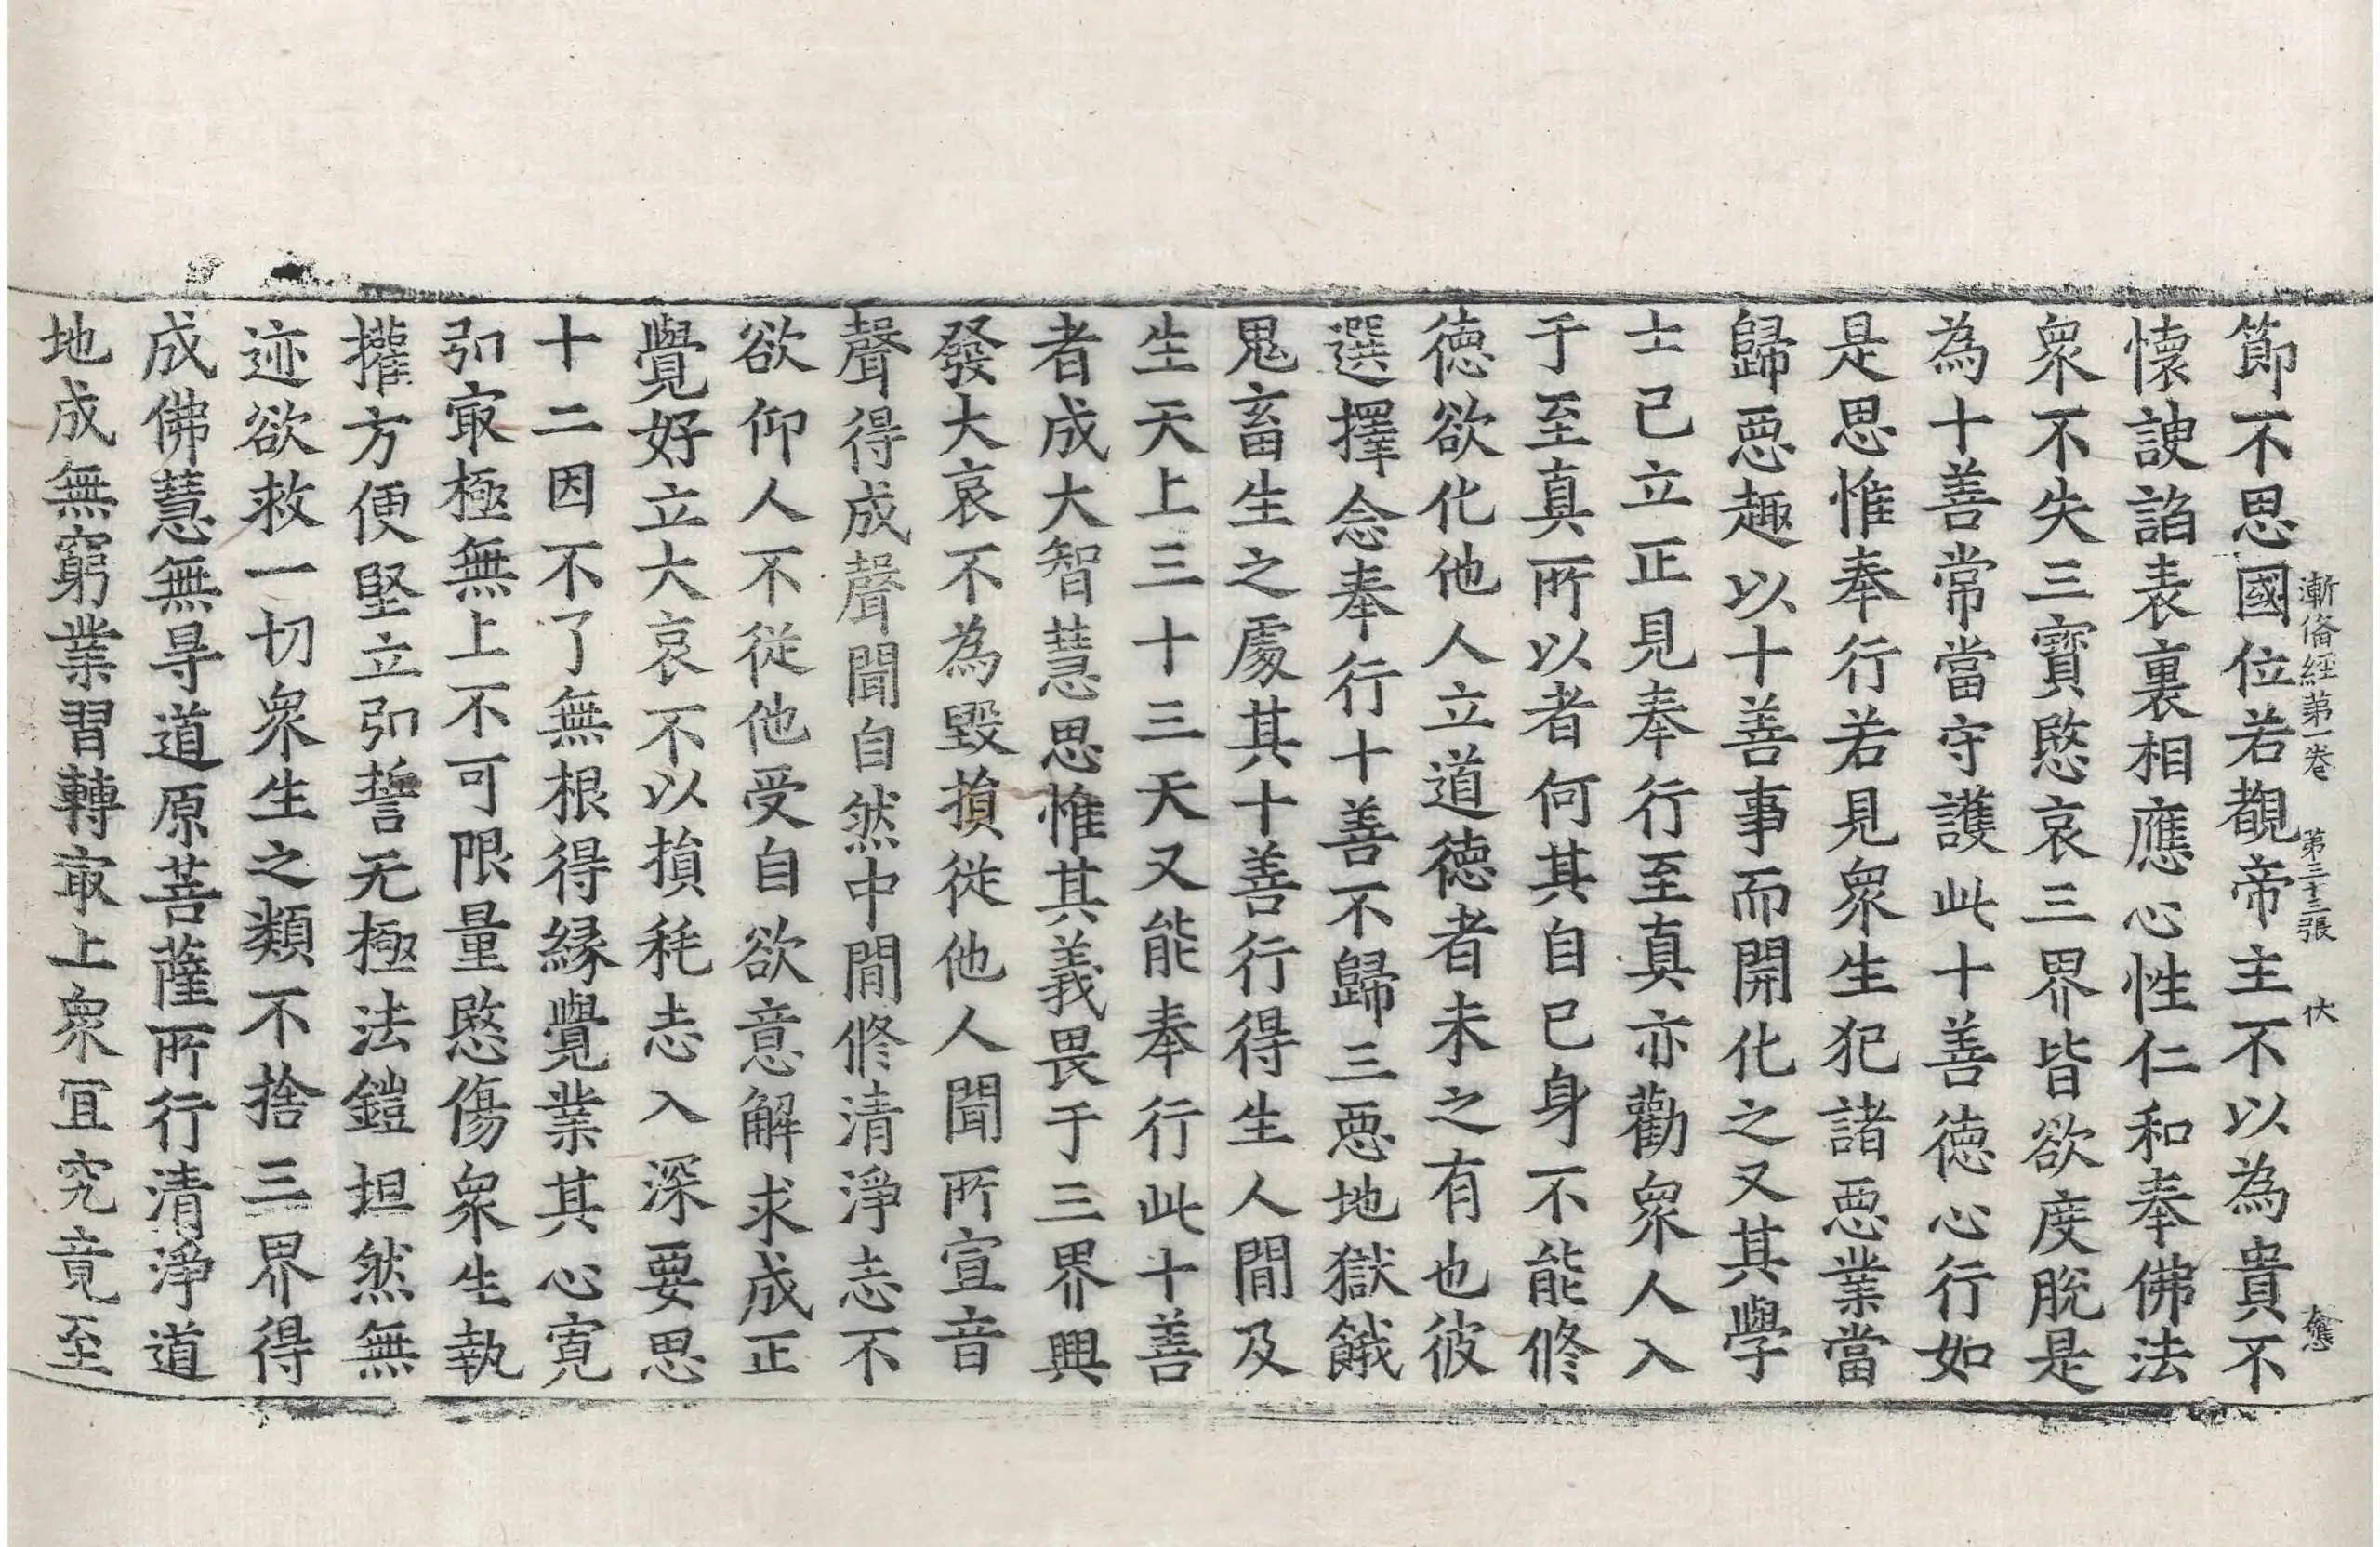 節不思國位若覩帝主不以為貴不
漸俻経第一卷 第三十三張 伏
懷諛諂表裏相應心性仁和奉佛法
衆不失三寳愍哀三界皆欲度脫是
為十善常當守護此十善德心行如
是思惟奉行若見衆生犯諸惡業當
歸惡趣以十善事而開化之又其學
士已立正見奉行至真亦勸衆人入
于至真所以者何其自已身不能修
德欲化他人立道德者未之有也彼
選擇念奉行十善不歸三惡地獄餓
鬼畜生之處其十善行得生人間及
生天上三十三天又能奉行此十善
者成大智慧思惟其義畏于三界興
發大哀不為毀損從他人聞所宣音
聲得成聲聞自然中間修清淨志不
欲仰人不從他受自欲意解求成正
覺好立大哀不以損耗志入深要思
十二因不了無根得緣覺業其心寬
弘冣極無上不可限量愍傷衆生執
攉方便堅立弘誓无極法鎧坦然無
迹欲救一切衆生之類不捨三界得
成佛慧無㝵道原菩薩所行清淨道
地成無窮業習轉冣上衆冝究竟至